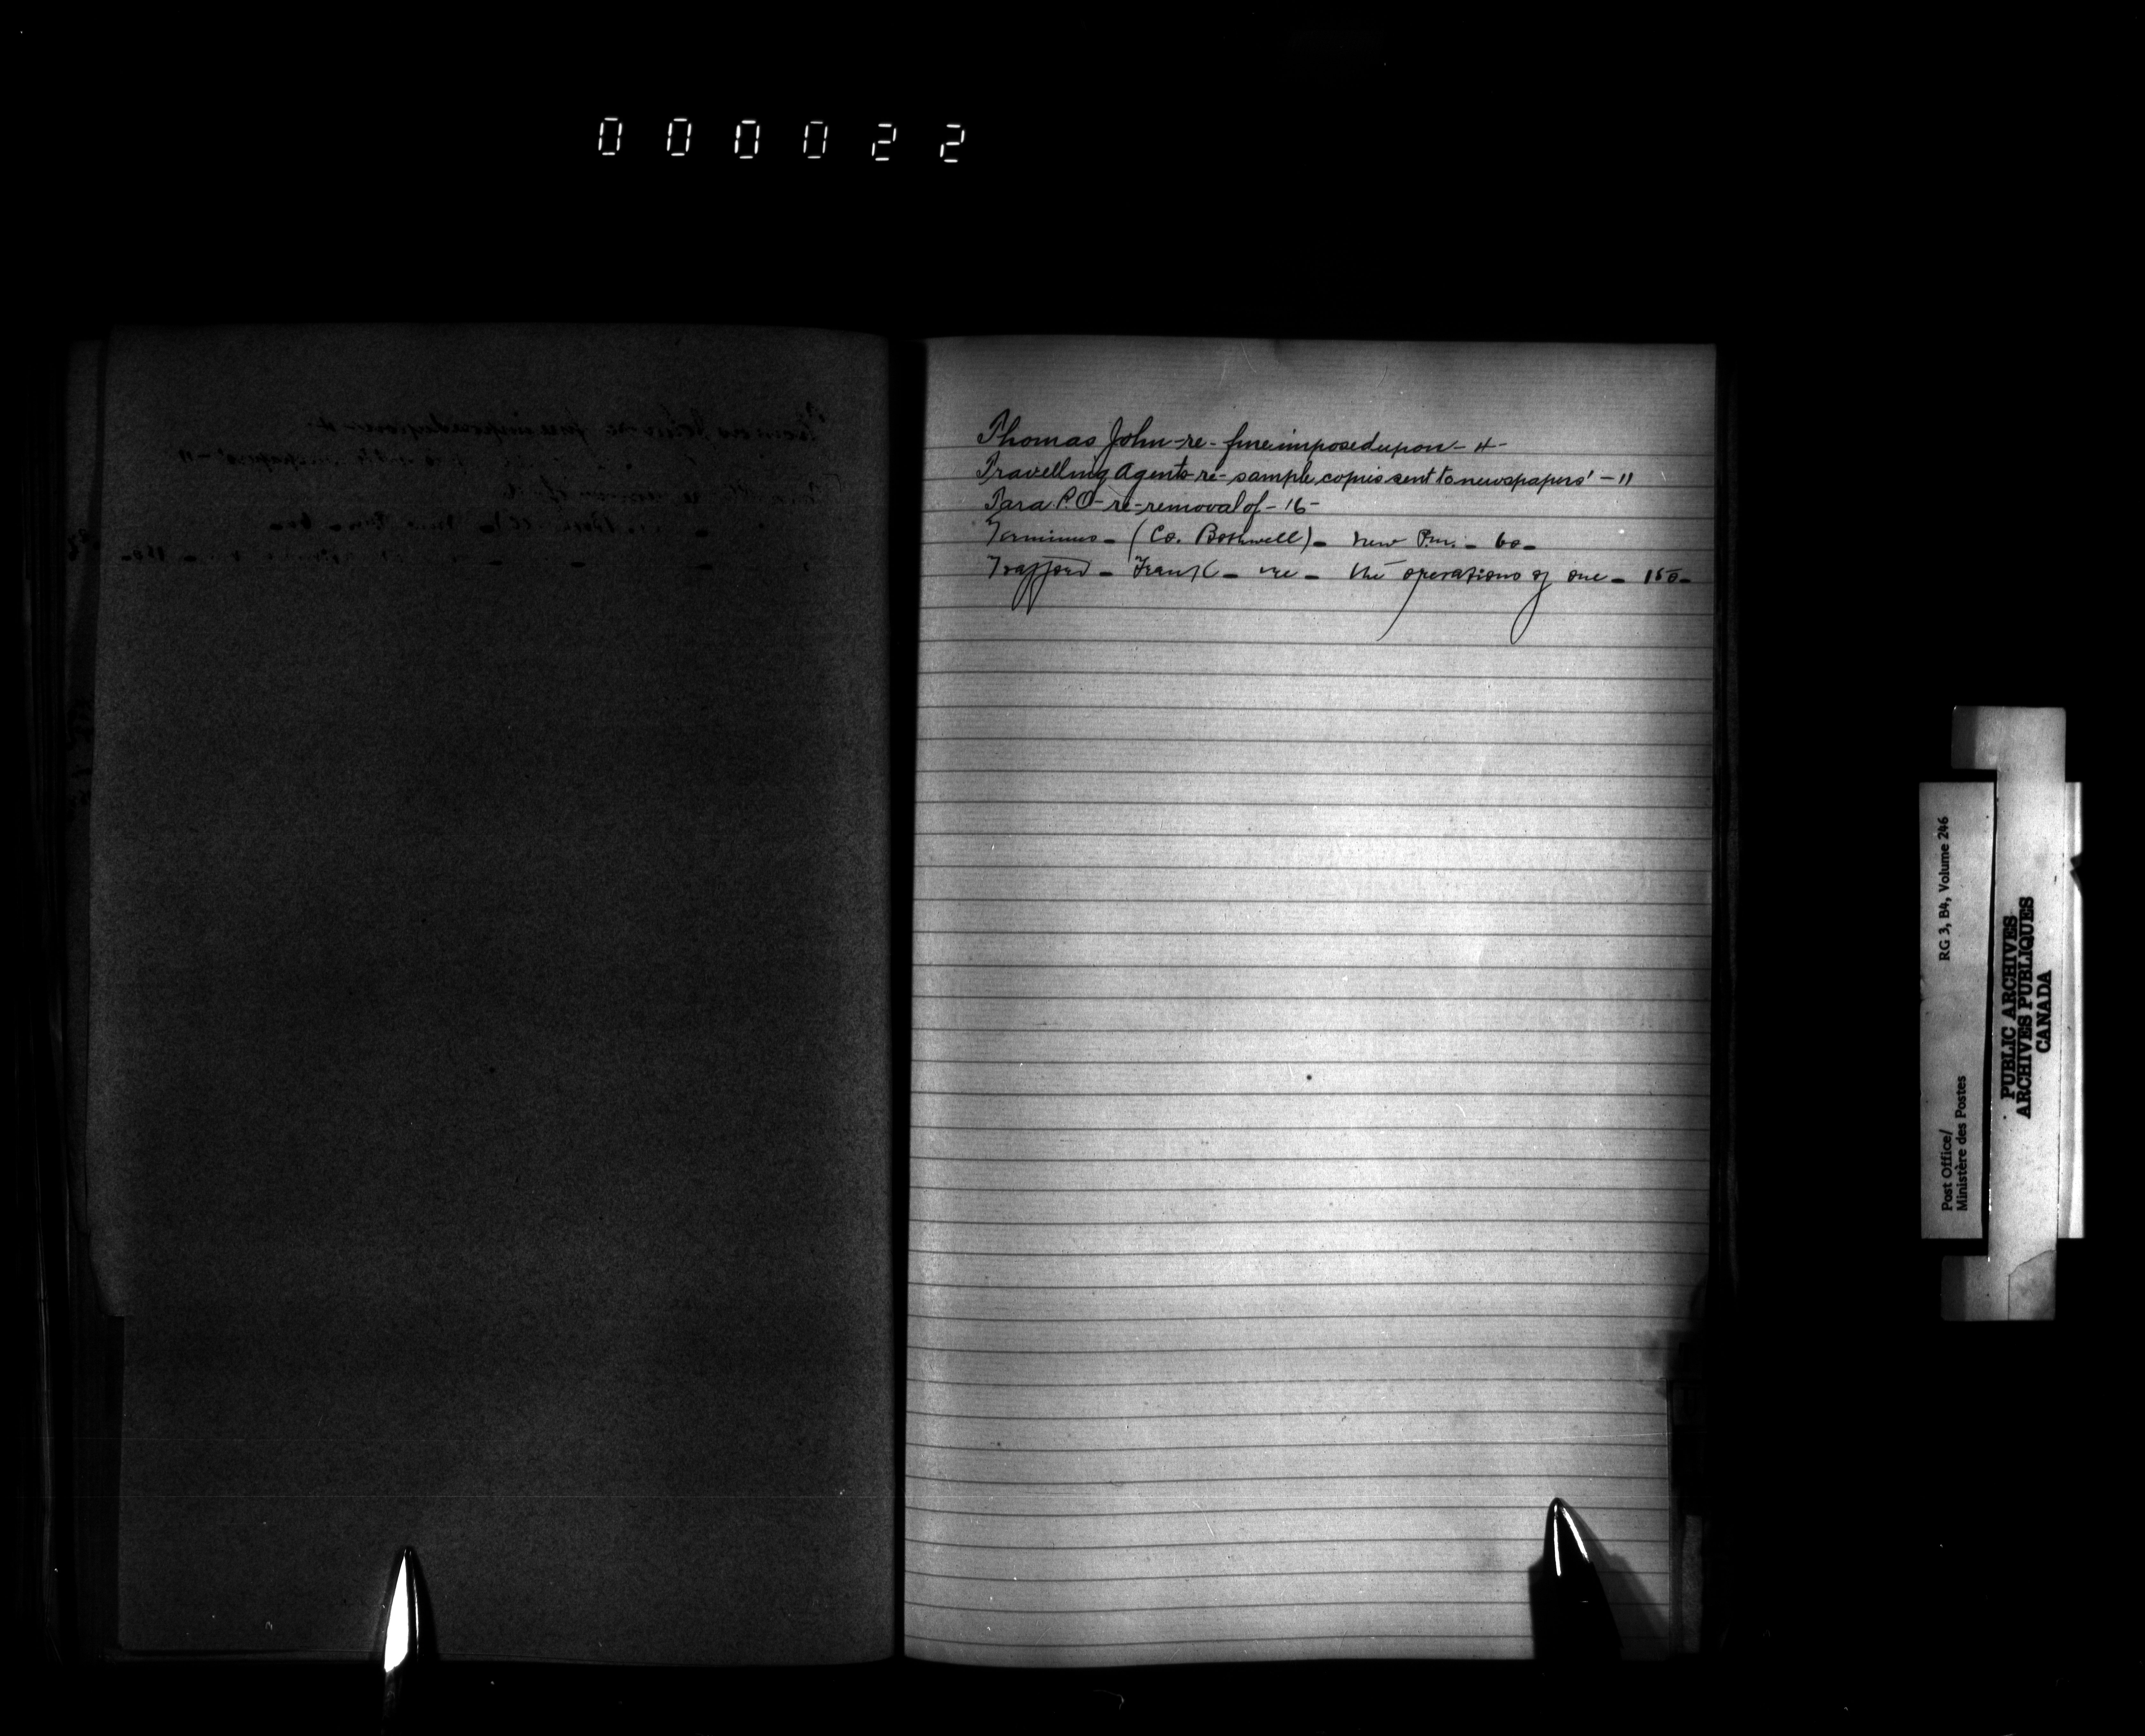 000022
Thomas John-re-fine imposed upon-4-
Travelling Agents re-sample copies sent to newspapers'-11
Tara P.O-re-removal of-16-
Terminus-(Co. Bothwell)-new P.m.-60-
Trafford-Frank-re-the operations of one-150-
RG 3, B4, Volume 246
Post Office/
Ministère des Postes
PUBLIC ARCHIVES
ARCHIVES PUBLIQUES
CANADA